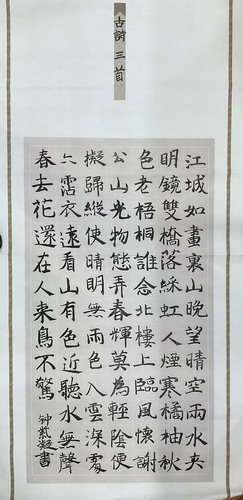 古詩三首
江城如畫裏山晚望晴空雨水夾
明鏡雙橋落綵虹人煙寒橘柚秋
色老梧桐誰念北樓上臨風懷謝
公山光物態弄春輝莫為輕陰便
擬歸縱使晴明無雨色入雲深處
亦霑衣遠看山有色近聽水無聲
春去花還在人來鳥不驚
钟凝書